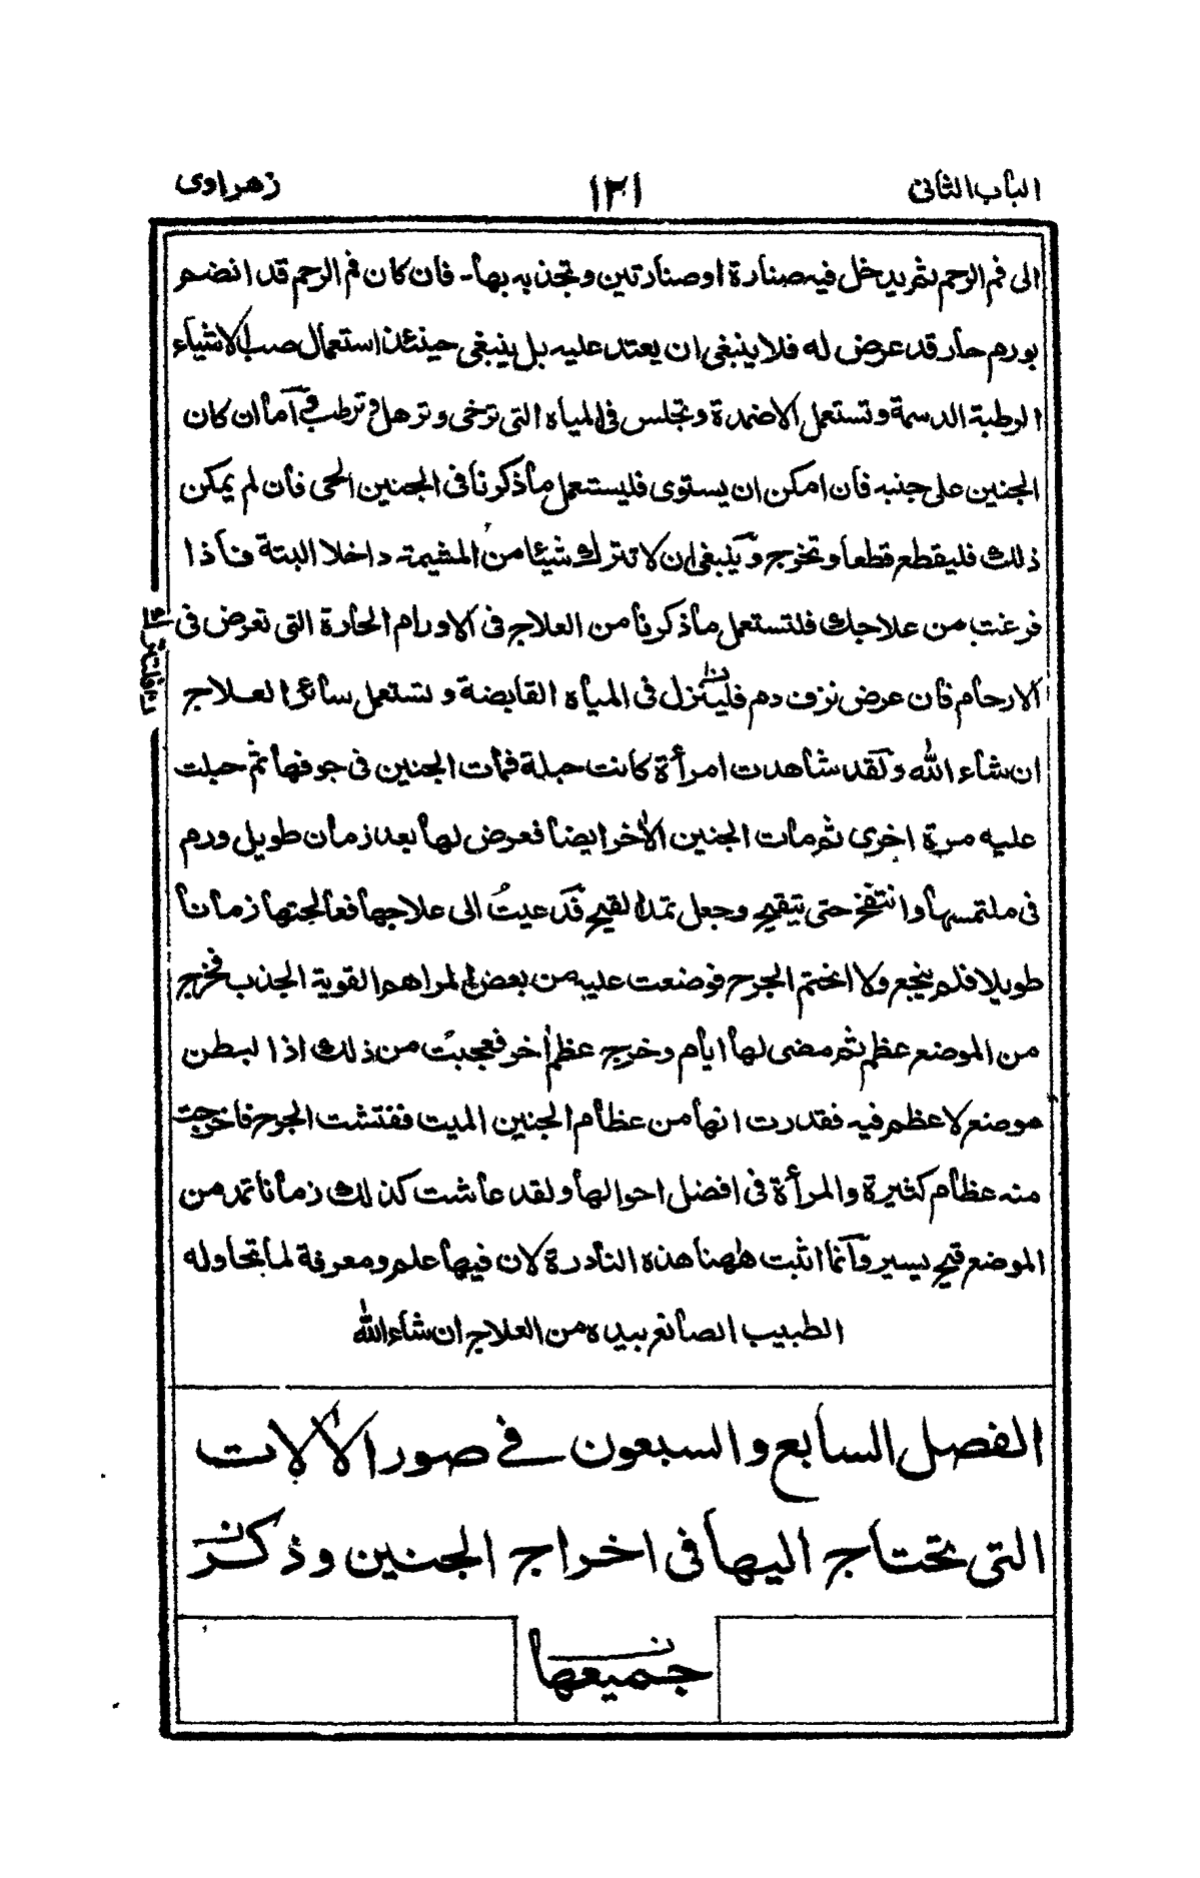 الباب الثانى ١٣١ زهراوى
الى فم الرحم ثم يدخل فيه صنارة او صنارتين وتجذبه بها - فان كان فم الرحم قد انضم
بورم حار قد عرض له فلا ينبغى ان يعتد عليه بل ينبغى حينئذ استعمال صب الاشياء
الرطبة الدسمة وتستعمل الاضمدة وتجلس فى المياه التى ترخى وترهل و ترطب و أما ان كان
الجنين على جنبه فان امكن ان يستوى فليستعمل ماذكرنا فى الجنين الحى فان لم يمكن
ذلك فليقطع قطعا وتخرج و ينبغى ان لا تترك شيئا من المشيمة داخلا البتة فاذا
فرغت من علاجك فلتستعمل ماذكرنا من العلاج فى الاورام الحارة التى تعرض فى
الارحام فان عرض نزف دم فلينزل فى المياه القابضة وتستعمل سائر العلاج
ان شاء الله و لقد شاهدت امرأة كانت حبلة فمات الجنين فى جوفها ثم حبلت
عليه مرة اخرى ثم مات الجنين الأخر ايضا فعرض لها بعد زمان طويل ورم
فى ملتمسها وانتفخ حتى يتقيح وجعل تمد القيح فدعيتُ الى علاجها فعالجتها زمانا
طويلا فلم ينجع ولا اختم الجرح فوضعت عليه من بعض المراهم القوية الجذب فخرج
من الموضع عظم ثم مضى لها ايام وخرج عظم أخر فعجبت من ذلك اذ البطن
موضع لا عظم فيه فقدرت انها من عظام الجنين الميت ففتشت الجرح فاخرجت
منه عظام كثيرة والمرأة فى افضل احوالها ولقد عاشت كذلك زمانا تمد من
الموضع قيح يسير وأنما اثبت ههنا هذه النادرة لان فيها علم ومعرفة لما تحاوله
الطبيب الصانع بيده من العلاج ان شاء الله
الفصل السابع والسبعون فى صور الألات
التى تحتاج اليها فى اخراج الجنين وذكر
جميعها